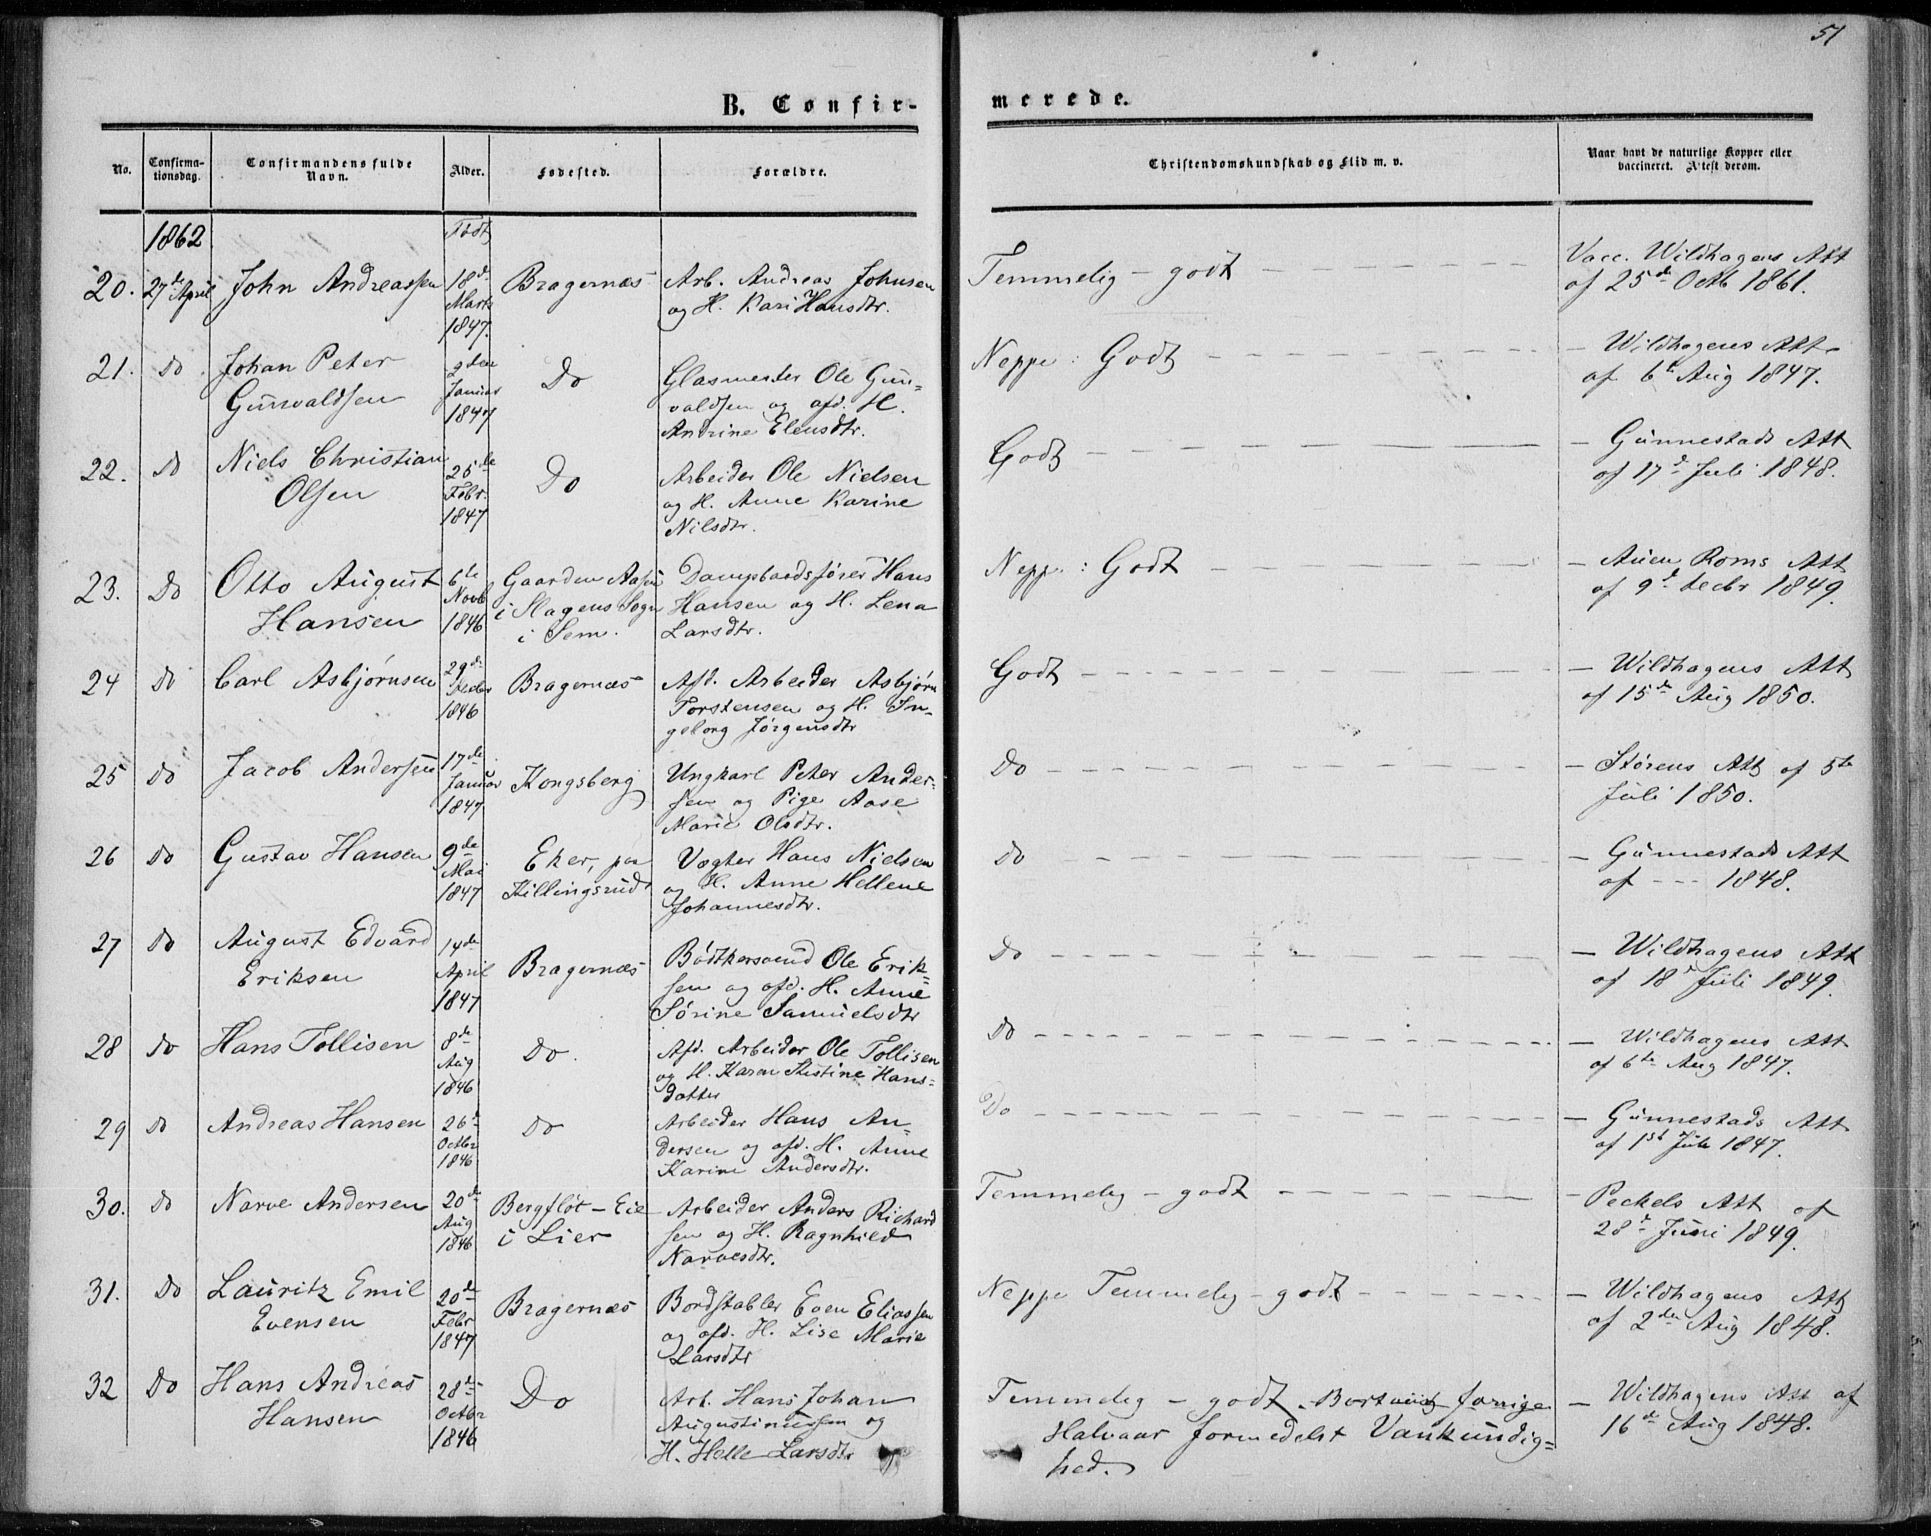 51
B. Confir-
merede.
No.
Confirma-
tionsdag.
Confirmandens fulde
Navn.
Alder.
Fødested.
Forældre.
Christendomskundskab og Flid m. v.
Naar havt de naturlige Kopper eller
vaccineret. Attest derom.
1862
Født
20. 27de April John Andreassen 18de Bragernæs Arb. Andreas Johnsen Temmelig – godt Vacc. Wildhagens Att
Marts og H. Kari Hansdtr. af 25de Octb 1861.
1847.
21. Do Johan Peter 9den Do Glasmester Ole Gun- Neppe : Godt – Wildhagens Att
Gunvaldsen Januar valdsen og afd. H. af 6te Aug 1847.
1847 Andrine Elensdtr.
22. Do Niels Christian 25de Do Arbeider Ole Nielsen Godt – Gunnestads Att
Olsen Febr og H. Anne Karine af 17de Juli 1848.
1847 Nilsdtr.
23. Do Otto August 6te Gaarden Aasen Dampbaadsfører Hans Neppe : Godt – Auen Roms Att
Hansen Novb i Slagens Sogn Hansen og H. Lena af 9de Decbr 1849.
1846 i Sem. Larsdtr.
24 Do Carl Asbjørnsen 29de Bragernæs Afd. Arbeider Asbjørn Godt – Wildhagens Att
Decbr Torstensen og H. In- af 15de Aug 1850.
1846 geborg Jørgensdtr
25 Do Jacob Andersen 17de Kongsberg Ungkarl Peter Ander- Do – Størens Att af 5te
Januar sen og Pige Aase Juli 1850.
1847 Marie Olsdtr.
26 Do Gustav Hansen 9de Eker, paa Vægter Hans Nielsen Do – Gunnestads Att
Mai Killingsrud og H. Anne Hellene af --- 1848.
1847 Johannesdtr.
27 Do August Edvard 14de Bragernæs Bødtkersvend Ole Erik- Do – Wildhagens Att
Eriksen April sen og afd. H. Anne af 18de Juli 1849.
1847 Sørine Samuelsdtr
28 Do Hans Tollisen 8de Do. Afd. Arbeider Ole Tollisen Do – Wildhagens Att
Aug og H. Karen Kistine Hans- af 6te Aug 1847.
1846 datter
29 Do Andreas Hansen 26de Do Arbeider Hans An- Do – Gunnestads Att
Octbr dersen og afd. H. Anne af 1st Juli 1847.
1846 Karine Andersdtr.
30. Do Narve Andersen 20de Bergfløt – Eie Arbeider Anders Richard Temmelig – godt – Peckels Att af
Aug i Lier sen og H. Ragnhild 28de Juni 1849.
1846 Narvesdtr.
31. Do Lauritz Emil 20de Bragernæs Bordstabler Even Eliassen Neppe Temmelig – godt – Wildhagens Att
Evensen Febr og afd. H. Lise Marie af 2den Aug 1848.
1847 Larsdtr
32 Do Hans Andreas 28de Do Arb. Hans Johan Temmelig – godt. Bortviist forrige – Wildhagens Att af
Hansen Octbr Augustinussen og Halvaar formedelst Vankundig- 16de Aug 1848.
1846 H. Helle Larsdtr hed.